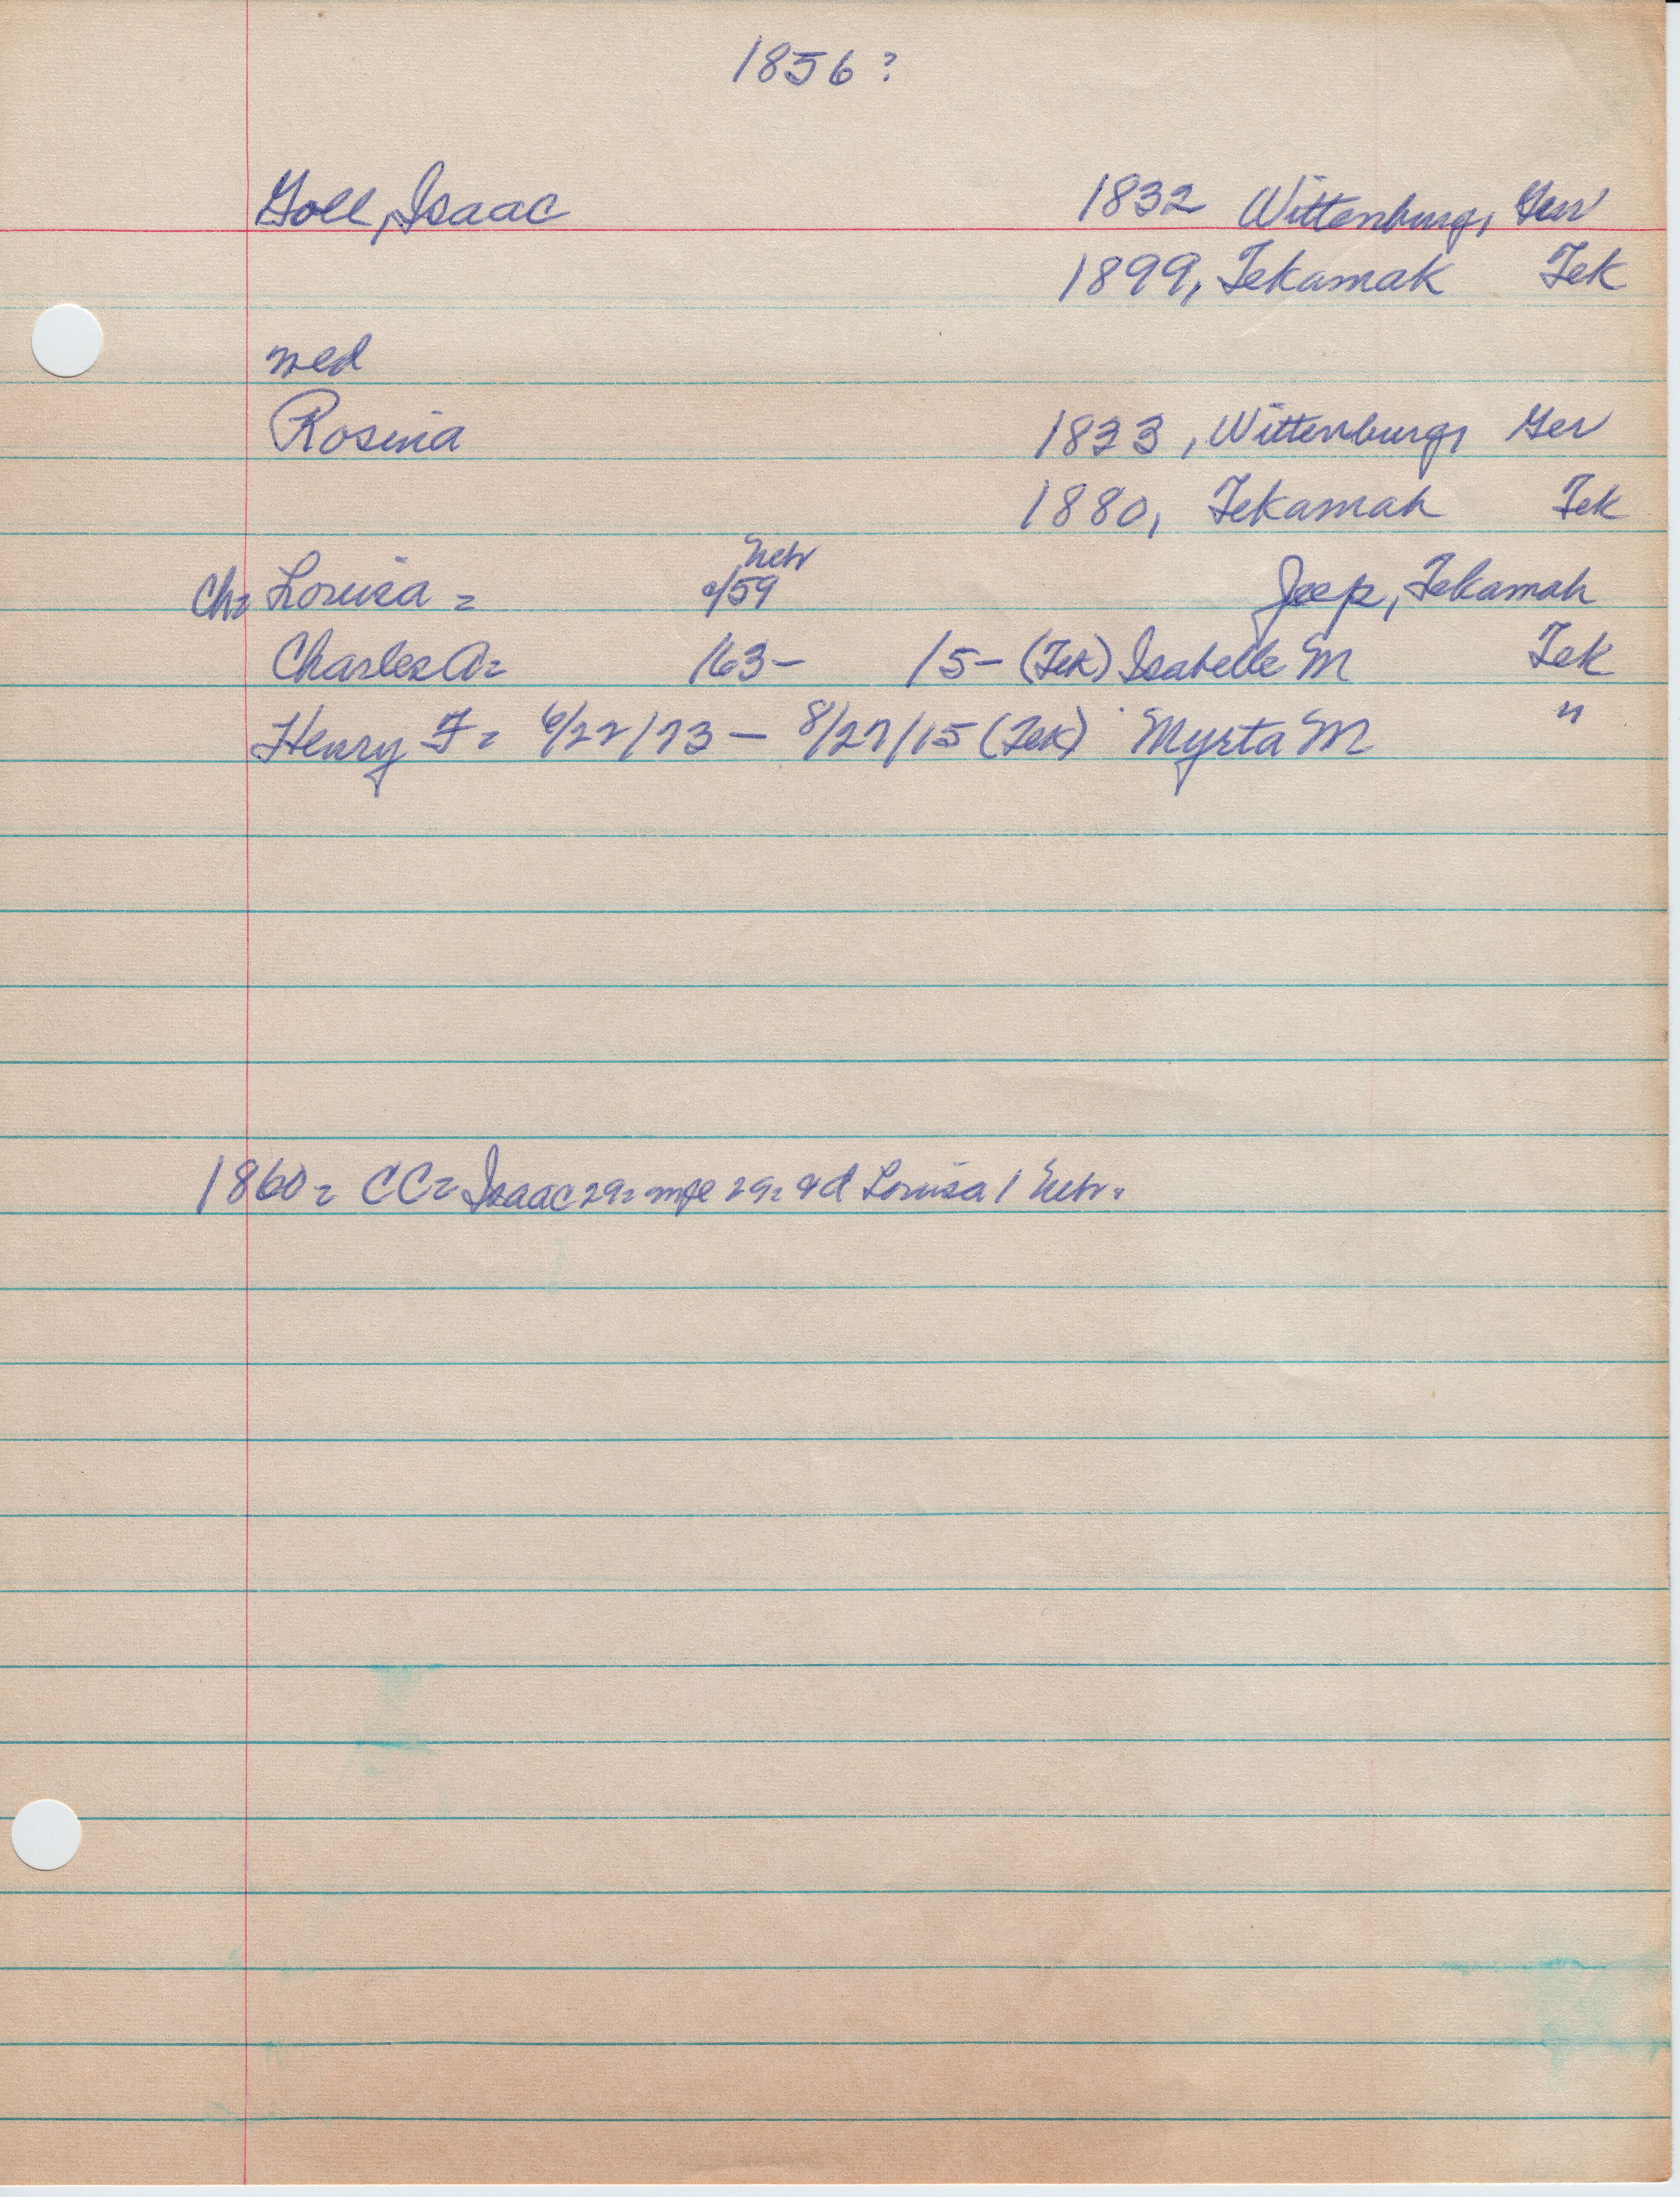 1856?
Goll, Isaac 1832 Wittenburg, Ger
1899, Tekamah Tek
wed
Rosina 1833, Wittenburg, Ger
1880, Tekamah Tek
Nebr
Ch= Louisa = /59 Jeep, Tekamah
Charles A= /63- /5- (Tek) Isabelle M Tek
Henry F= 6/22/73 - 8/27/15 (Tek) Myrta M "
1860= CC= Isaac 29= 29= Louisa 1 Nebr.